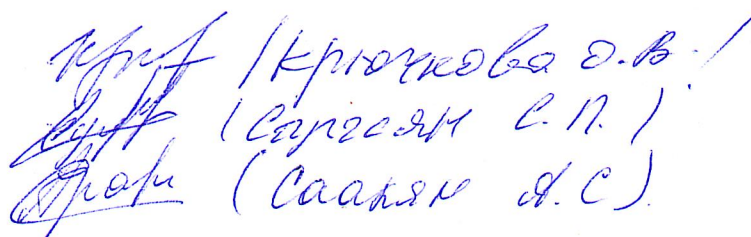 /Крючкова О.В./
(Саргсян С.П.)
(Саакян А.С).